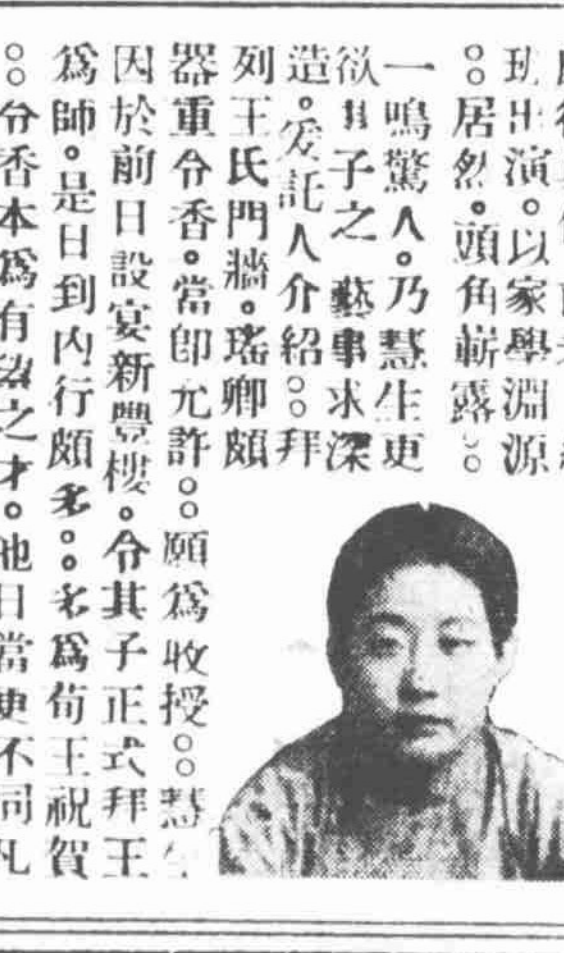 班出演。以家學淵源
。。居然。頭角嶄露。。
一鳴驚人。乃慧生更
欲其子之藝事求深
造。爰託人介紹。。拜
列王氏門牆。瑤卿頗
器重令香。當卽允許。。願爲收授。。慧生
因於前日設宴新豐樓。令其子正式拜王
爲師。是日到內行頗多。。多爲荀王祝賀
。。令香本爲有之才。他日當更不同凡